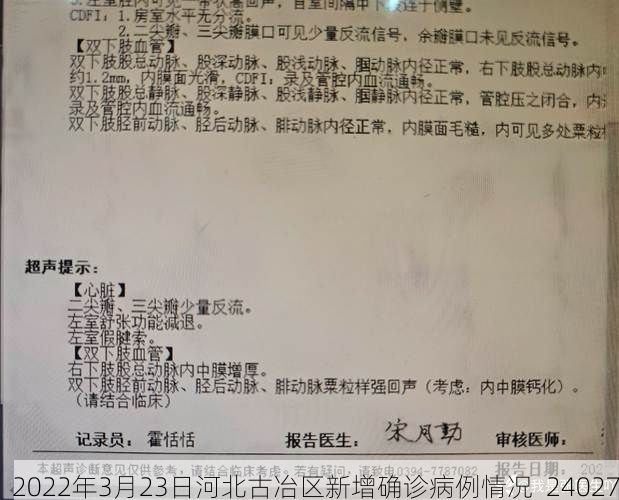 3.左室腔内可见一带状强回声，自室间隔中下段连于侧壁。
CDFI：1.房室水平无分流。
2.二尖瓣、三尖瓣膜口可见少量反流信号，余瓣膜口未见反流信号。
【双下肢血管】
双下肢股总动脉、股深动脉、股浅动脉、腘动脉内径正常，右下肢股总动脉内
约1.2mm，内膜面光滑，CDFI：录及管腔内血流通畅。
双下肢股总静脉、股深静脉、股浅静脉、腘静脉内径正常，管腔压之闭合，内
录及管腔内血流通畅。
双下肢胫前动脉、胫后动脉、腓动脉内径正常，内膜面毛糙，内可见多处粟粒
超声提示：
【心脏】
二尖瓣、三尖瓣少量反流。
左室舒张功能减退。
左室假腱索。
【双下肢血管】
右下肢股总动脉内中膜增厚。
双下肢胫前动脉、胫后动脉、腓动脉粟粒样强回声（考虑：内中膜钙化）。
（请结合临床）
记录员： 霍恬恬 报告医生： 宋月勤 审核医师：
本超声诊断意见仅供参考，请结合临床考虑。若有疑问，请致电0394-7787082 报告日期： 202
2022年3月23日河北古冶区新增确诊病例情况_24027